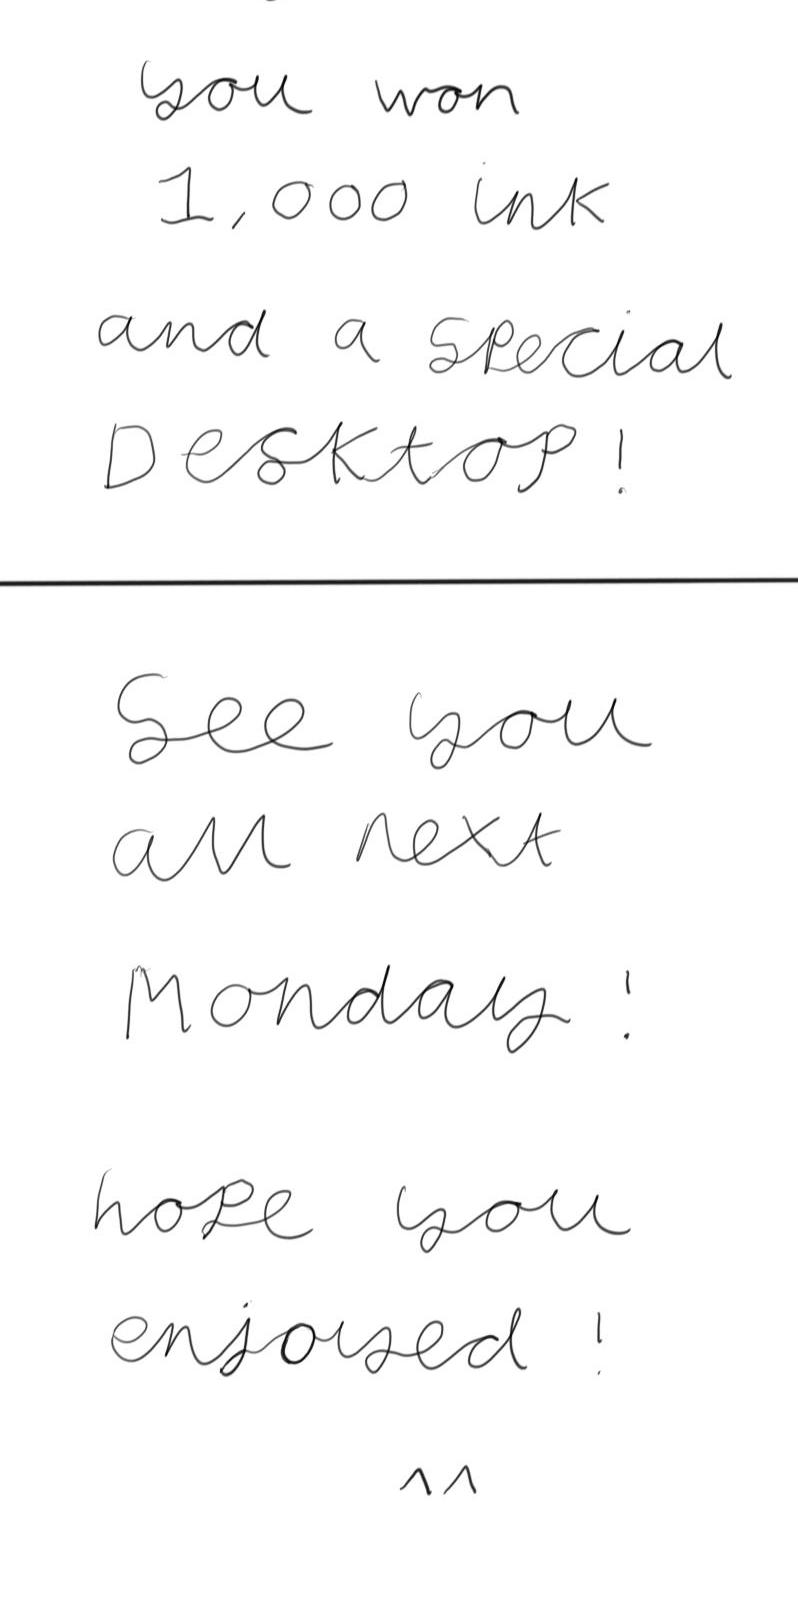 you won
1,000 ink
and a special
Desktop!
See you
all next
Monday!
hope you
enjoyed!
^^